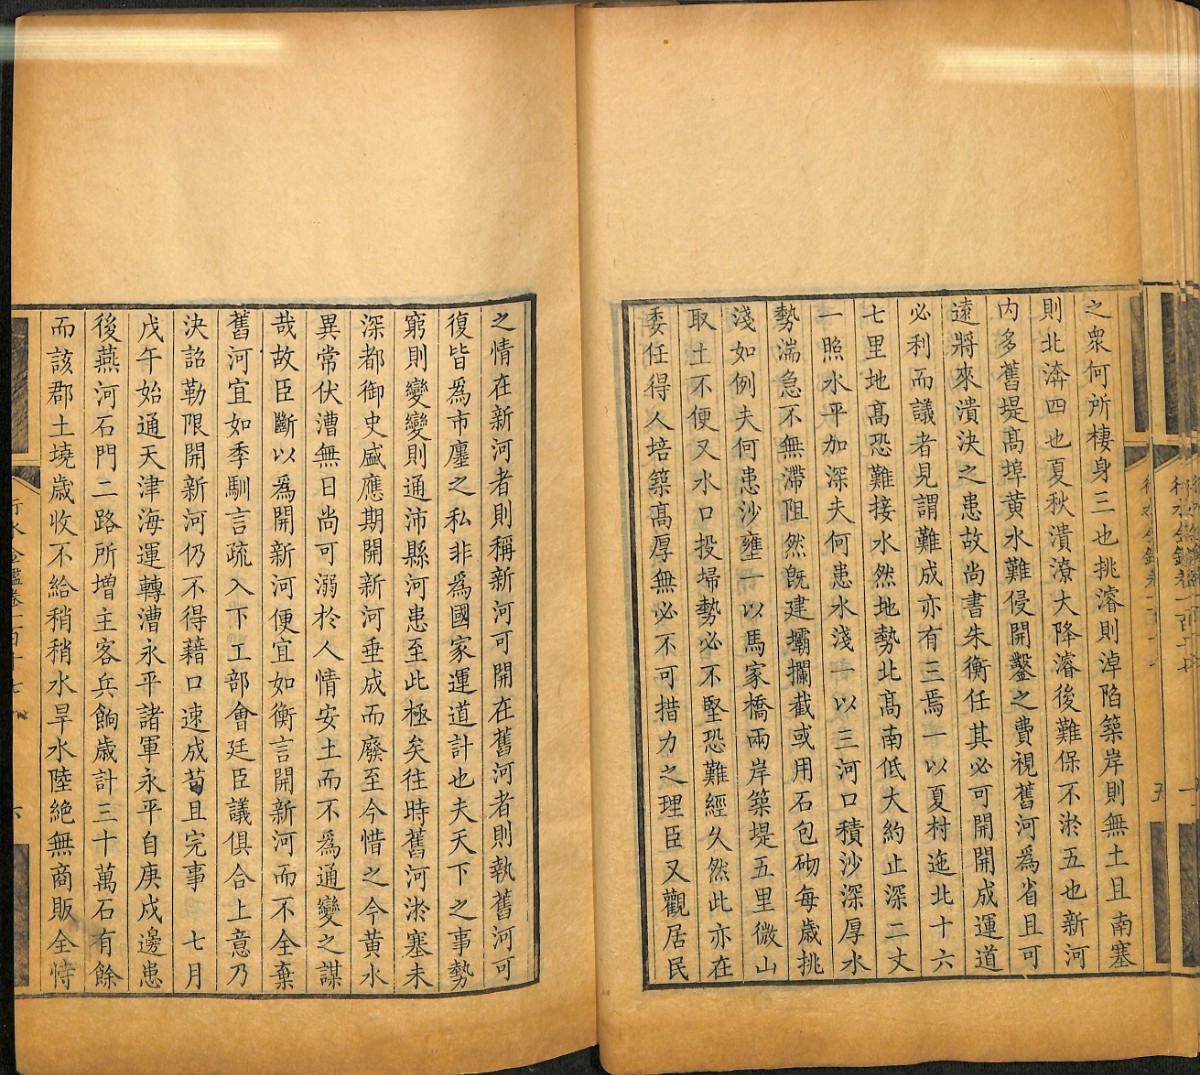 之衆何所棲身三也挑濬則淖陷築岸則無土且南塞
則北渀四也夏秋潰潦大降濬後難保不淤五也新河
内多舊堤髙埠黄水難侵開鑿之費視舊河爲省且可
遠將來潰決之患故尚書朱衡任其必可開開成運道
必利而議者見謂難成亦有三焉一以夏村迤北十六
七里地髙恐難接水然地勢北髙南低大約止深二丈
一照水平加深夫何患水淺一以三河口積沙深厚水
勢湍急不無滯阻然旣建壩攔截或用石包砌每歲挑
淺如例夫何患沙壅一以馬家橋兩岸築堤五里微山
取土不便又水口投埽勢必不堅恐難經久然此亦在
委任得人培築髙厚無必不可措力之理臣又觀居民
之情在新河者則稱新河可開在舊河者則執舊河可
復皆爲市廛之私非爲國家運道計也夫天下之事勢
窮則變變則通沛縣河患至此極矣往時舊河淤塞未
深都御史盛應期開新河垂成而廢至今惜之今黄水
異常伏漕無日尚可溺於人情安土而不爲通變之謀
哉故臣斷以爲開新河便宜如衡言開新河而不全棄
舊河宜如季馴言疏入下工部會廷臣議俱合上意乃
決詔勒限開新河仍不得藉口速成苟且完事 七月
戊午始通天津海運轉漕永平諸軍永平自庚戌邊患
後燕河石門二路所增主客兵餉歲計三十萬石有餘
而該郡土墝歲收不給稍稍水旱水陸絶無商販全恃
行水金鑑卷一百十七
六